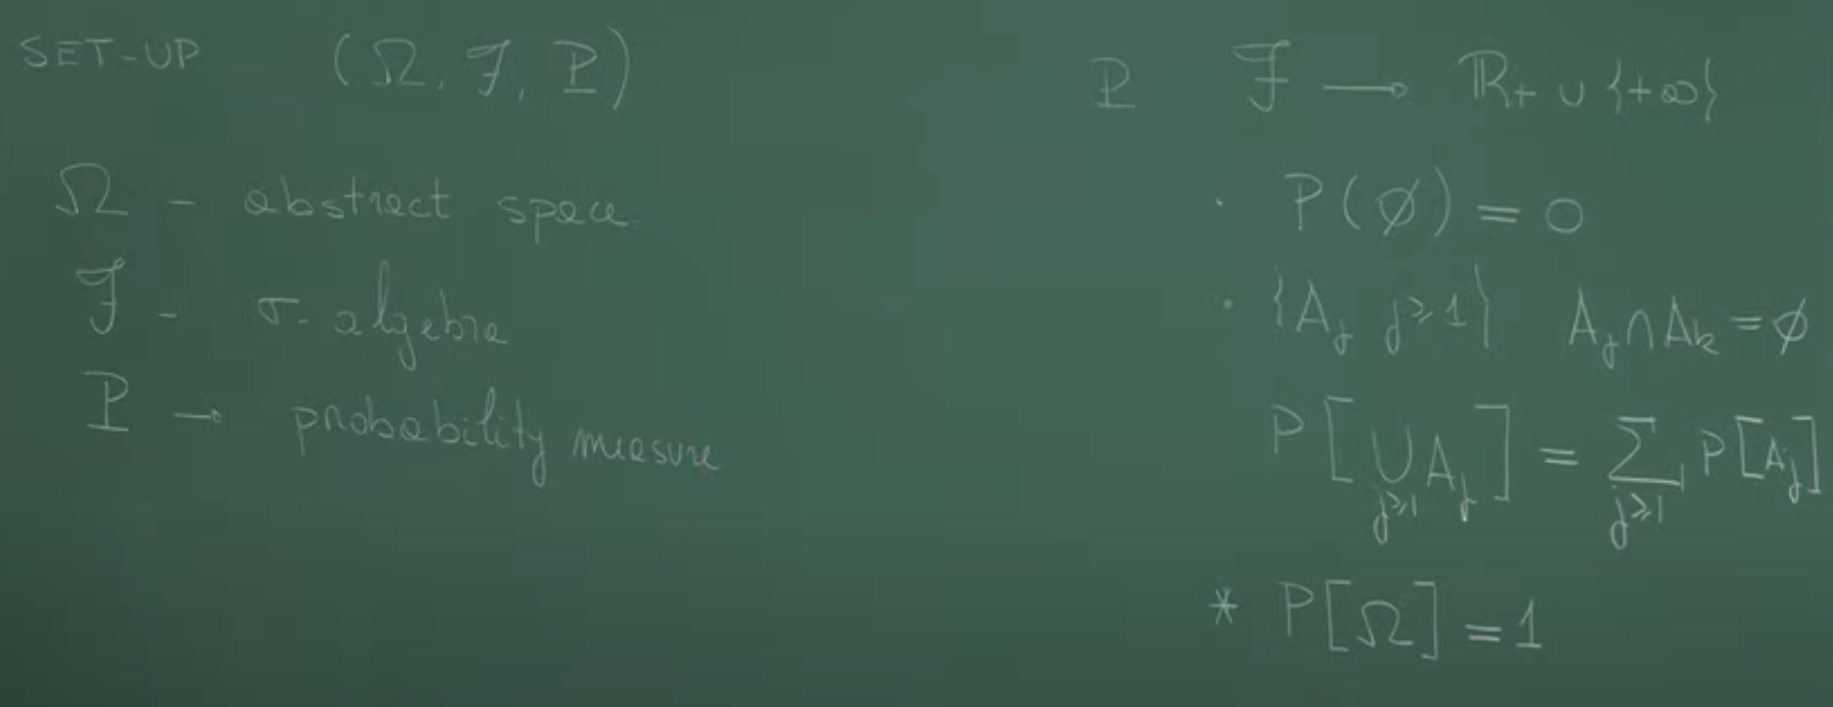 SET-UP (Ω, ℱ, P)
Ω - abstract space
ℱ - σ-algebra
P → probability measure
P ℱ → ℝ+ ∪ {+∞}
· P(∅) = 0
· {Aj j≥1} Aj∩Ak = ∅
P[∪j≥1 Aj] = Σj≥1 P[Aj]
* P[Ω] = 1